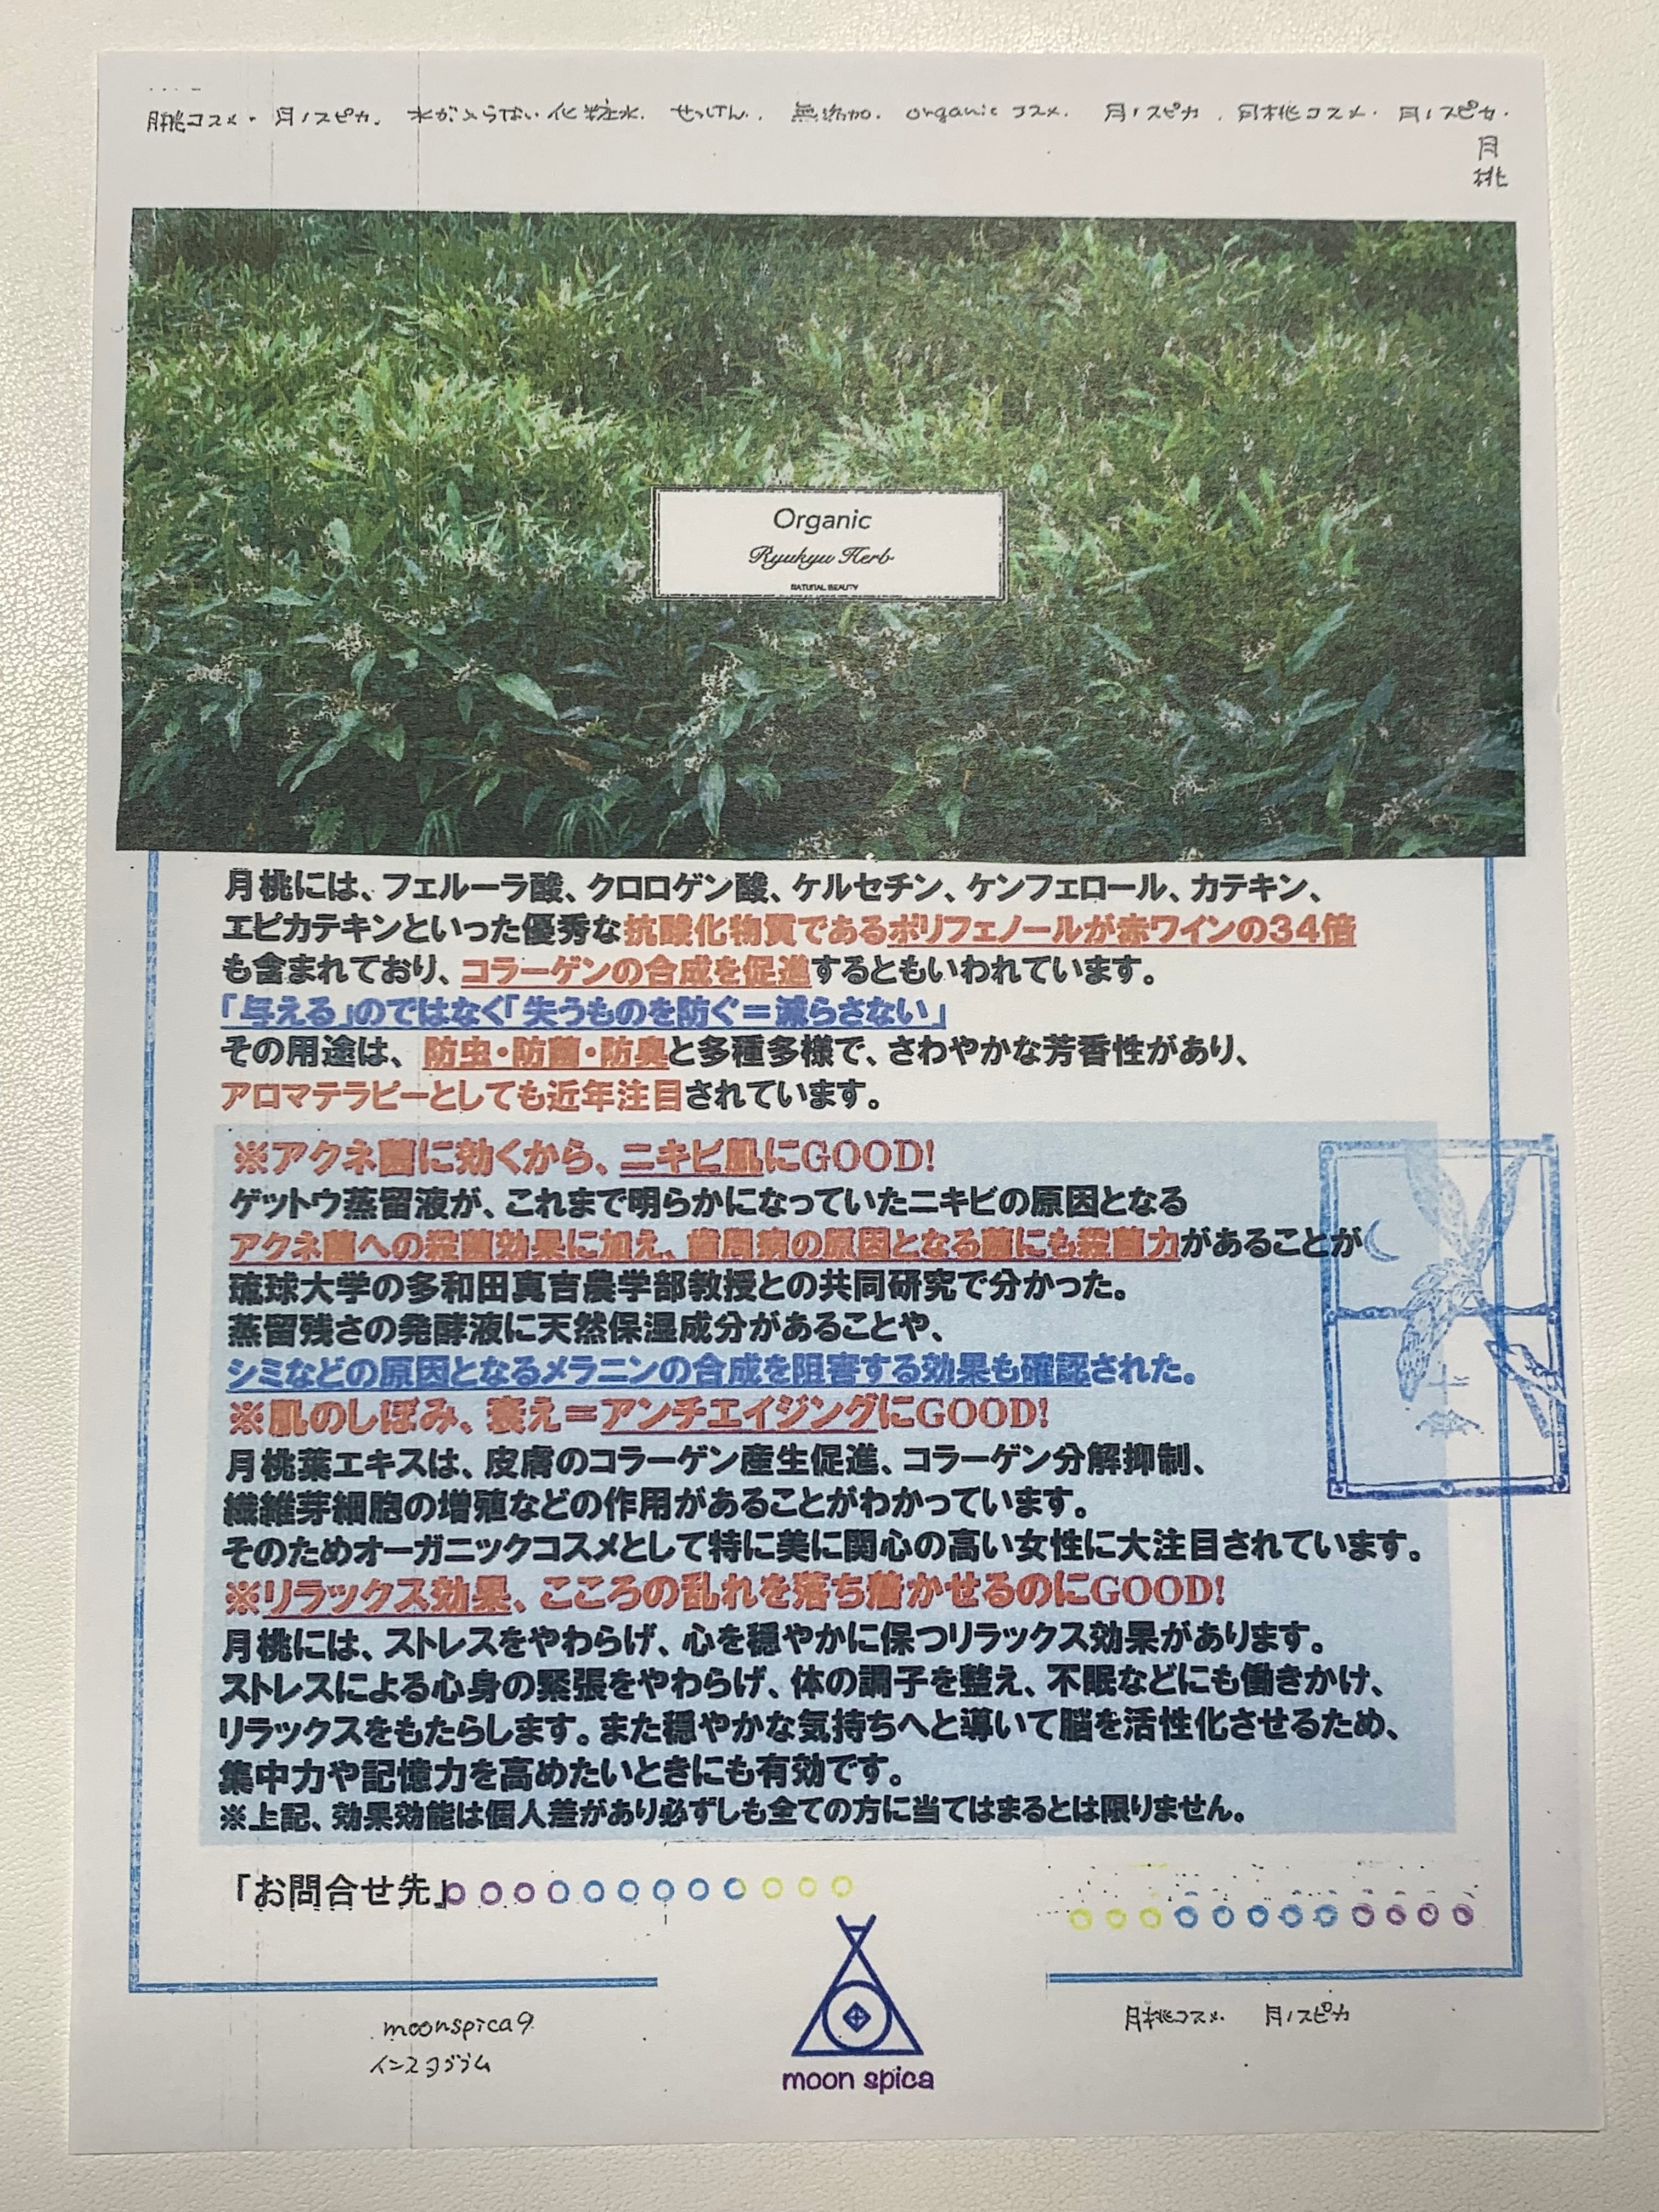 月桃コスメ・月ノスピカ. 水がいらない化粧水. せっけん. 無添加. organic コスメ. 月ノスピカ. 月桃コスメ. 月ノスピカ.
月
桃
Organic
Ryukyu Herb
NATURAL BEAUTY
月桃には、フェルーラ酸、クロロゲン酸、ケルセチン、ケンフェロール、カテキン、
エピカテキンといった優秀な抗酸化物質であるポリフェノールが赤ワインの34倍
も含まれており、コラーゲンの合成を促進するともいわれています。
「与える」のではなく「失うものを防ぐ＝減らさない」
その用途は、防虫・防菌・防臭と多種多様で、さわやかな芳香性があり、
アロマテラピーとしても近年注目されています。
※アクネ菌に効くから、ニキビ肌にGOOD!
ゲットウ蒸留液が、これまで明らかになっていたニキビの原因となる
アクネ菌への殺菌効果に加え、歯周病の原因となる菌にも殺菌力があることが
琉球大学の多和田真吉農学部教授との共同研究で分かった。
蒸留残さの発酵液に天然保湿成分があることや、
シミなどの原因となるメラニンの合成を阻害する効果も確認された。
※肌のしぼみ、衰え＝アンチエイジングにGOOD!
月桃葉エキスは、皮膚のコラーゲン産生促進、コラーゲン分解抑制、
繊維芽細胞の増殖などの作用があることがわかっています。
そのためオーガニックコスメとして特に美に関心の高い女性に大注目されています。
※リラックス効果、こころの乱れを落ち着かせるのにGOOD!
月桃には、ストレスをやわらげ、心を穏やかに保つリラックス効果があります。
ストレスによる心身の緊張をやわらげ、体の調子を整え、不眠などにも働きかけ、
リラックスをもたらします。また穏やかな気持ちへと導いて脳を活性化させるため、
集中力や記憶力を高めたいときにも有効です。
※上記、効果効能は個人差があり必ずしも全ての方に当てはまるとは限りません。
「お問合せ先」
moonspica9
インスタグラム
moon spica
月桃コスメ. 月ノスピカ